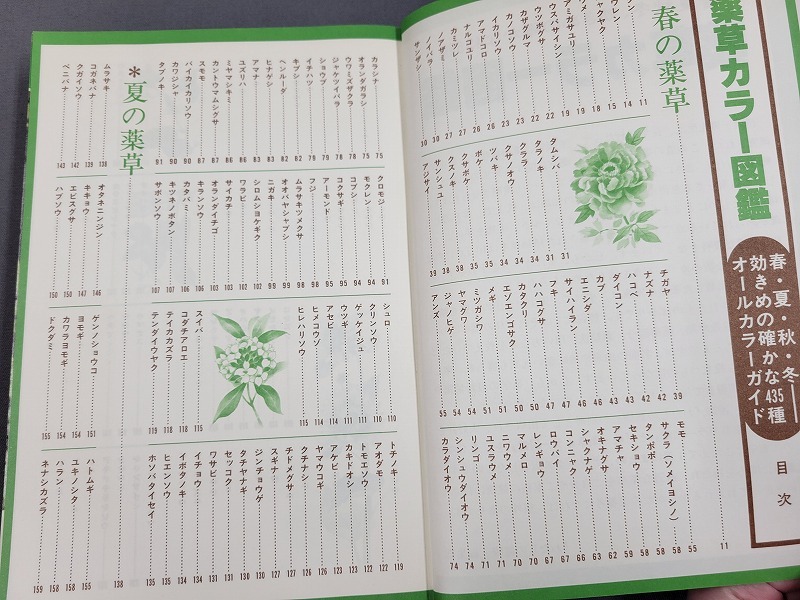 薬草カラー図鑑
春・夏・秋・冬
効きめの確かな435種
オールカラーガイド
目次
春の薬草 11
アミガサユリ
ウスバサイシン
ウツボグサ
カザグルマ
カノコソウ
イカリソウ
アマドコロ
ナルコユリ
カミツレ
ノアザミ
ノイバラ
サンザシ 30
タムシバ 31
タラノキ 31
クララ 34
クサノオウ
ツバキ
ボケ
クサボケ
クスノキ
サンシュユ 38
アジサイ 39
チガヤ 39
ナズナ 42
ハコベ 42
ダイコン
カブ
エニシダ
サイハイラン
フキ
ハハコグサ
カタクリ
エゾエンゴサク
メギ 51
ミツガシワ
ヤマグワ 54
ジャノヒゲ 54
アンズ 55
モモ 55
サクラ（ソメイヨシノ） 58
タンポポ 58
セキショウ 58
アマチャ 59
オキナグサ 62
シャクナゲ 63
コンニャク 66
ロウバイ 66
レンギョウ 67
マルメロ 67
ニワウメ 70
ユスラウメ 70
リンゴ 71
シンシュウダイオウ 71
カラダイオウ 74
カラシナ 75
オランダガラシ 75
ウワミズザクラ 78
ジャケツイバラ 78
ショウブ 79
イチハツ 79
キブシ 82
ヘンルーダ 82
ヒナゲシ 82
アマナ 83
ユズリハ 83
ミヤマシキミ 86
カントウマムシグサ 86
スモモ 87
バイカイカリソウ 87
カワヂシャ 90
タブノキ 91
クロモジ 91
モクレン 94
コブシ 94
コクサギ 95
アーモンド 95
フジ 98
ムラサキツメクサ 98
オオバヤシャブシ 99
ニガキ 99
シロムショケギク 102
ワラビ 102
サイカチ 102
オランダイチゴ 103
キランソウ 103
カタバミ 106
キツネノボタン 107
サボンソウ 107
シュロ 110
クリンソウ 110
ゲッケイジュ 111
ウツギ 111
アセビ 114
ヒメコウゾ 114
ヒレハリソウ 115
スイバ 115
コダチアロエ 118
テイカカズラ 118
テンダイウヤク 119
トチノキ 119
アオダモ 122
トモエソウ 122
カキドオシ 123
アケビ 123
ヤマウコギ 126
クチナシ 126
チドメグサ 127
スギナ 127
ジンチョウゲ 130
タチヤナギ 130
セッコク 131
ワサビ 131
イチョウ 134
イボタノキ 134
ヒエンソウ 135
ホソバタイセイ 135
＊夏の薬草 138
ムラサキ 138
コガネバナ 139
クガイソウ 142
ベニバナ 143
オタネニンジン 146
キキョウ 147
エビスグサ 150
ハブソウ 150
ゲンノショウコ 151
ヨモギ 154
カワラヨモギ 154
ドクダミ 155
ハトムギ 155
ユキノシタ 158
ハラン 158
ネナシカズラ 159